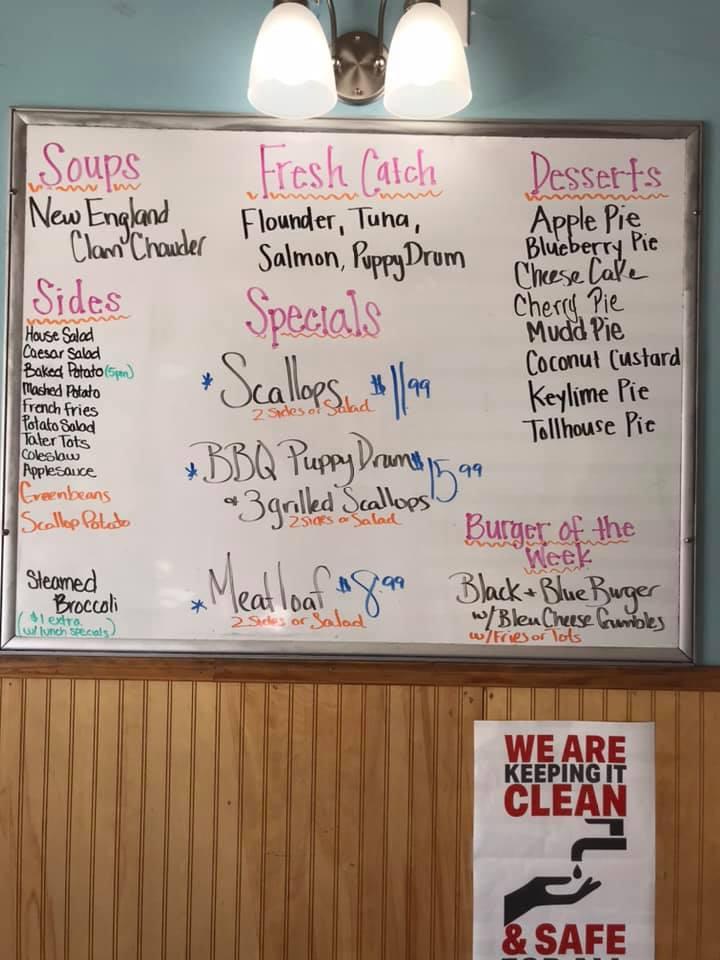 Soups
New England
Clam Chowder
Sides
House Salad
Caesar Salad
Baked Potato (5pm)
Mashed Potato
French Fries
Potato Salad
Tater Tots
Coleslaw
Applesauce
Greenbeans
Scallop Potato
Steamed
Broccoli
($1 extra
w/ lunch specials)
Fresh Catch
Flounder, Tuna,
Salmon, Puppy Drum
Specials
* Scallops $11.99
2 Sides or Salad
* BBQ Puppy Drum $15.99
& 3 grilled Scallops
2 sides or Salad
* Meatloaf $8.99
2 Sides or Salad
Desserts
Apple Pie
Blueberry Pie
Cheese Cake
Cherry Pie
Mudd Pie
Coconut Custard
Keylime Pie
Tollhouse Pie
Burger of the
Week
Black + Blue Burger
w/ Bleu Cheese Crumbles
w/ Fries or Tots
WE ARE
KEEPING IT
CLEAN
& SAFE
FOR ALL